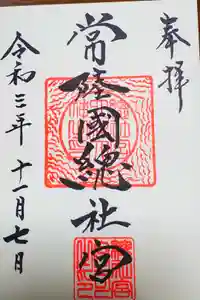 奉拝
常陸國總社宮
令和三年 十一月七日